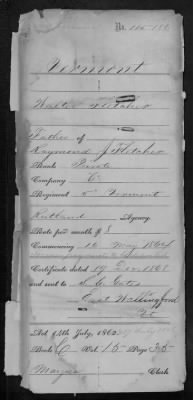 No. 116.188
Vermont
Walter Fletcher
Father of
Raymond J Fletcher
Rank Private
Company C
Regiment 5" Vermont
Rutland Agency
Rate per month $ 8
Commencing 16 May 1864
Certificate dated 19 Dec 1868
and sent to S. G. Gates
East Wallingford
Vt
Act 14th July, 1862.
Book C Vol. 15 Page 35
Clerk